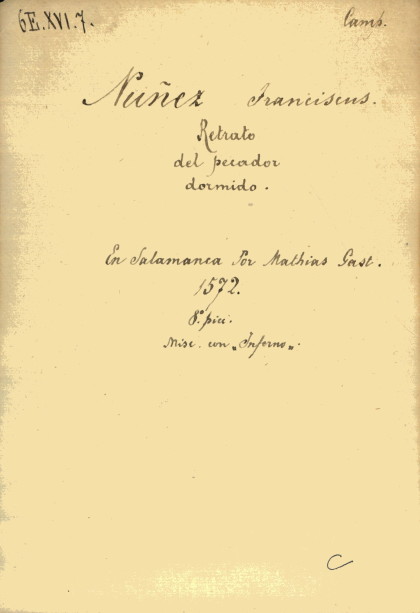 6E.XVI.7. Camb.
Nuñez Franciscus.
Retrato
del pecador
dormido.
En Salamanca Por Mathias Gast.
1572.
8.° picc.
Misc. con „Inferno„.
C